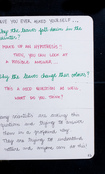 HAVE YOU EVER ASKED YOURSELF...
Why the leaves fall down in the
winter?
THINK OF AN HYPOTHESIS =
THEN, YOU CAN LOOK AT
A POSSIBLE ANSWER...
Why the leaves change their colours?
THIS A GOOD QUESTION AS WELL
WHAT DO YOU THINK?
Many scientists are asking this
question and trying to answer
them in a
They are trying to understand
nature and anyone can do this!